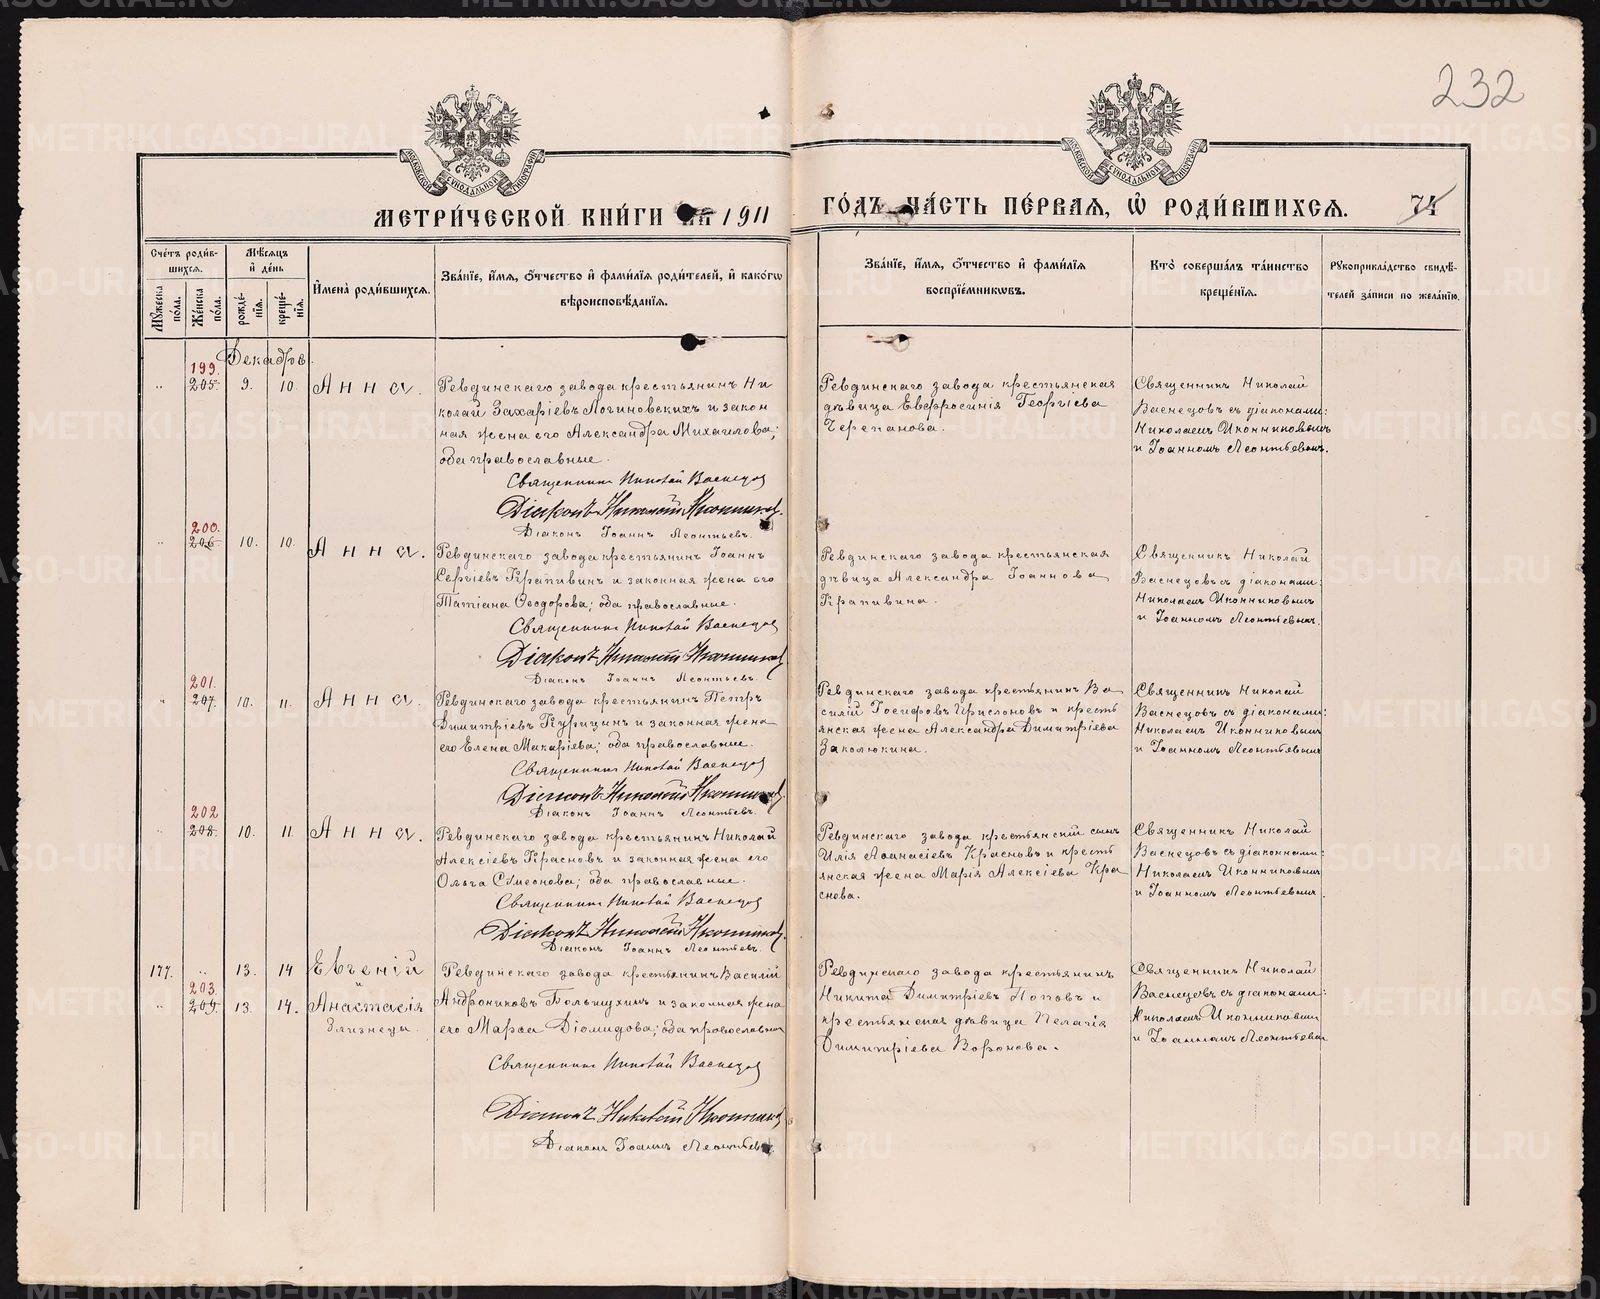 232
МОСКОВСКОЙ СѴНОДАЛЬНОЙ ТИПОГРАФІИ
МОСКОВСКОЙ СѴНОДАЛЬНОЙ ТИПОГРАФІИ
МЕТРИ́ЧЕСКОЙ КНИ́ГИ НА 1911
ГО́ДЪ ЧА́СТЬ ПЕ́РВАЯ, Ѽ РОДИ́ВШИХСЯ.
74
Сче́тъ роди́в-
шихся.
Му́жеска по́ла.
Же́нска по́ла.
Мѣ́сяцъ
и҆ де́нь
рожде́-нїя.
креще́-нїя.
И҆мена̀ роди́вшихся.
Зва́нїе, и҆́мя, ѻ҆́тчество и҆ фами́лїя роди́телей, и҆ како́гѡ
вѣроисповѣ́данїя.
Зва́нїе, и҆́мя, ѻ҆́тчество и҆ фами́лїя
воспрїе́мникѡвъ.
Кто̀ соверша́лъ та́инство
креще́нїя.
Рꙋкоприкла́дство свидѣ́-
телей за́писи по жела́нїю.
Декабрь.
199.
" 205. 9. 10. Анна.
Ревдинскаго завода крестьянинъ Ни
колай Захаріевъ Логиновскихъ и закон
ная жена его Александра Михаилова;
оба православные.
Священникъ Николай Васнецов
Діаконъ Николай Иконников.
Діаконъ Іоаннъ Леонтьевъ.
Ревдинскаго завода крестьянская
дѣвица Евфросинія Георгіева
Черепанова.
Священникъ Николай
Васнецовъ съ діаконами:
Николаемъ Иконниковымъ
и Іоанномъ Леонтьевымъ.
200.
" 206. 10. 10. Анна.
Ревдинскаго завода крестьянинъ Іоаннъ
Сергіевъ Крапивинъ и законная жена его
Татіана Ѳеодорова; оба православные.
Священникъ Николай Васнецов
Діаконъ Николай Иконников
Діаконъ Іоаннъ Леонтьевъ.
Ревдинскаго завода крестьянская
дѣвица Александра Іоаннова
Крапивина.
Священникъ Николай
Васнецовъ съ діаконами:
Николаемъ Иконниковымъ
и Іоанномъ Леонтьевымъ.
201.
" 207. 10. 11. Анна.
Ревдинскаго завода крестьянинъ Петръ
Димитріевъ Курицинъ и законная жена
его Елена Макаріева; оба православные.
Священникъ Николай Васнецов
Діаконъ Николай Иконников
Діаконъ Іоаннъ Леонтьевъ.
Ревдинскаго завода крестьянинъ Ва
силій Іосифовъ и кресть
янская жена Александра Димитріева
Заколюкина.
Священникъ Николай
Васнецовъ съ діаконами:
Николаемъ Иконниковымъ
и Іоанномъ Леонтьевымъ
202
" 208. 10. 11 Анна.
Ревдинскаго завода крестьянинъ Николай
Алексіевъ Красновъ и законная жена его
Ольга Сѵмеонова; оба православные.
Священникъ Николай Васнецов
Діаконъ Николай Иконников.
Діаконъ Іоаннъ Леонтьевъ.
Ревдинскаго завода крестьянскій сынъ
Илія Аѳанасіевъ Красновъ и кресть
янская жена Марія Алексіева Кра
снова.
Священникъ Николай
Васнецовъ съ діаконами:
Николаемъ Иконниковымъ
и Іоанномъ Леонтьевымъ
177. " 13. 14 Евгеній
и
203.
" 209. 13. 14. Анастасія
близнецы.
Ревдинскаго завода крестьянинъ Василій
Андрониковъ и законная жена
его Марѳа Діомидова; оба православные
Священникъ Николай Васнецов
Діаконъ Николай Иконников
Діаконъ Іоаннъ Леонтьевъ.
Ревдинскаго завода крестьянинъ
Никита Димитріевъ Поповъ и
крестьянская дѣвица Пелагія
Димитріева Воронова.
Священникъ Николай
Васнецовъ съ діаконами:
Николаемъ Иконниковымъ
и Іоанномъ Леонтьевымъ
METRIKI.GASO-URAL.RU